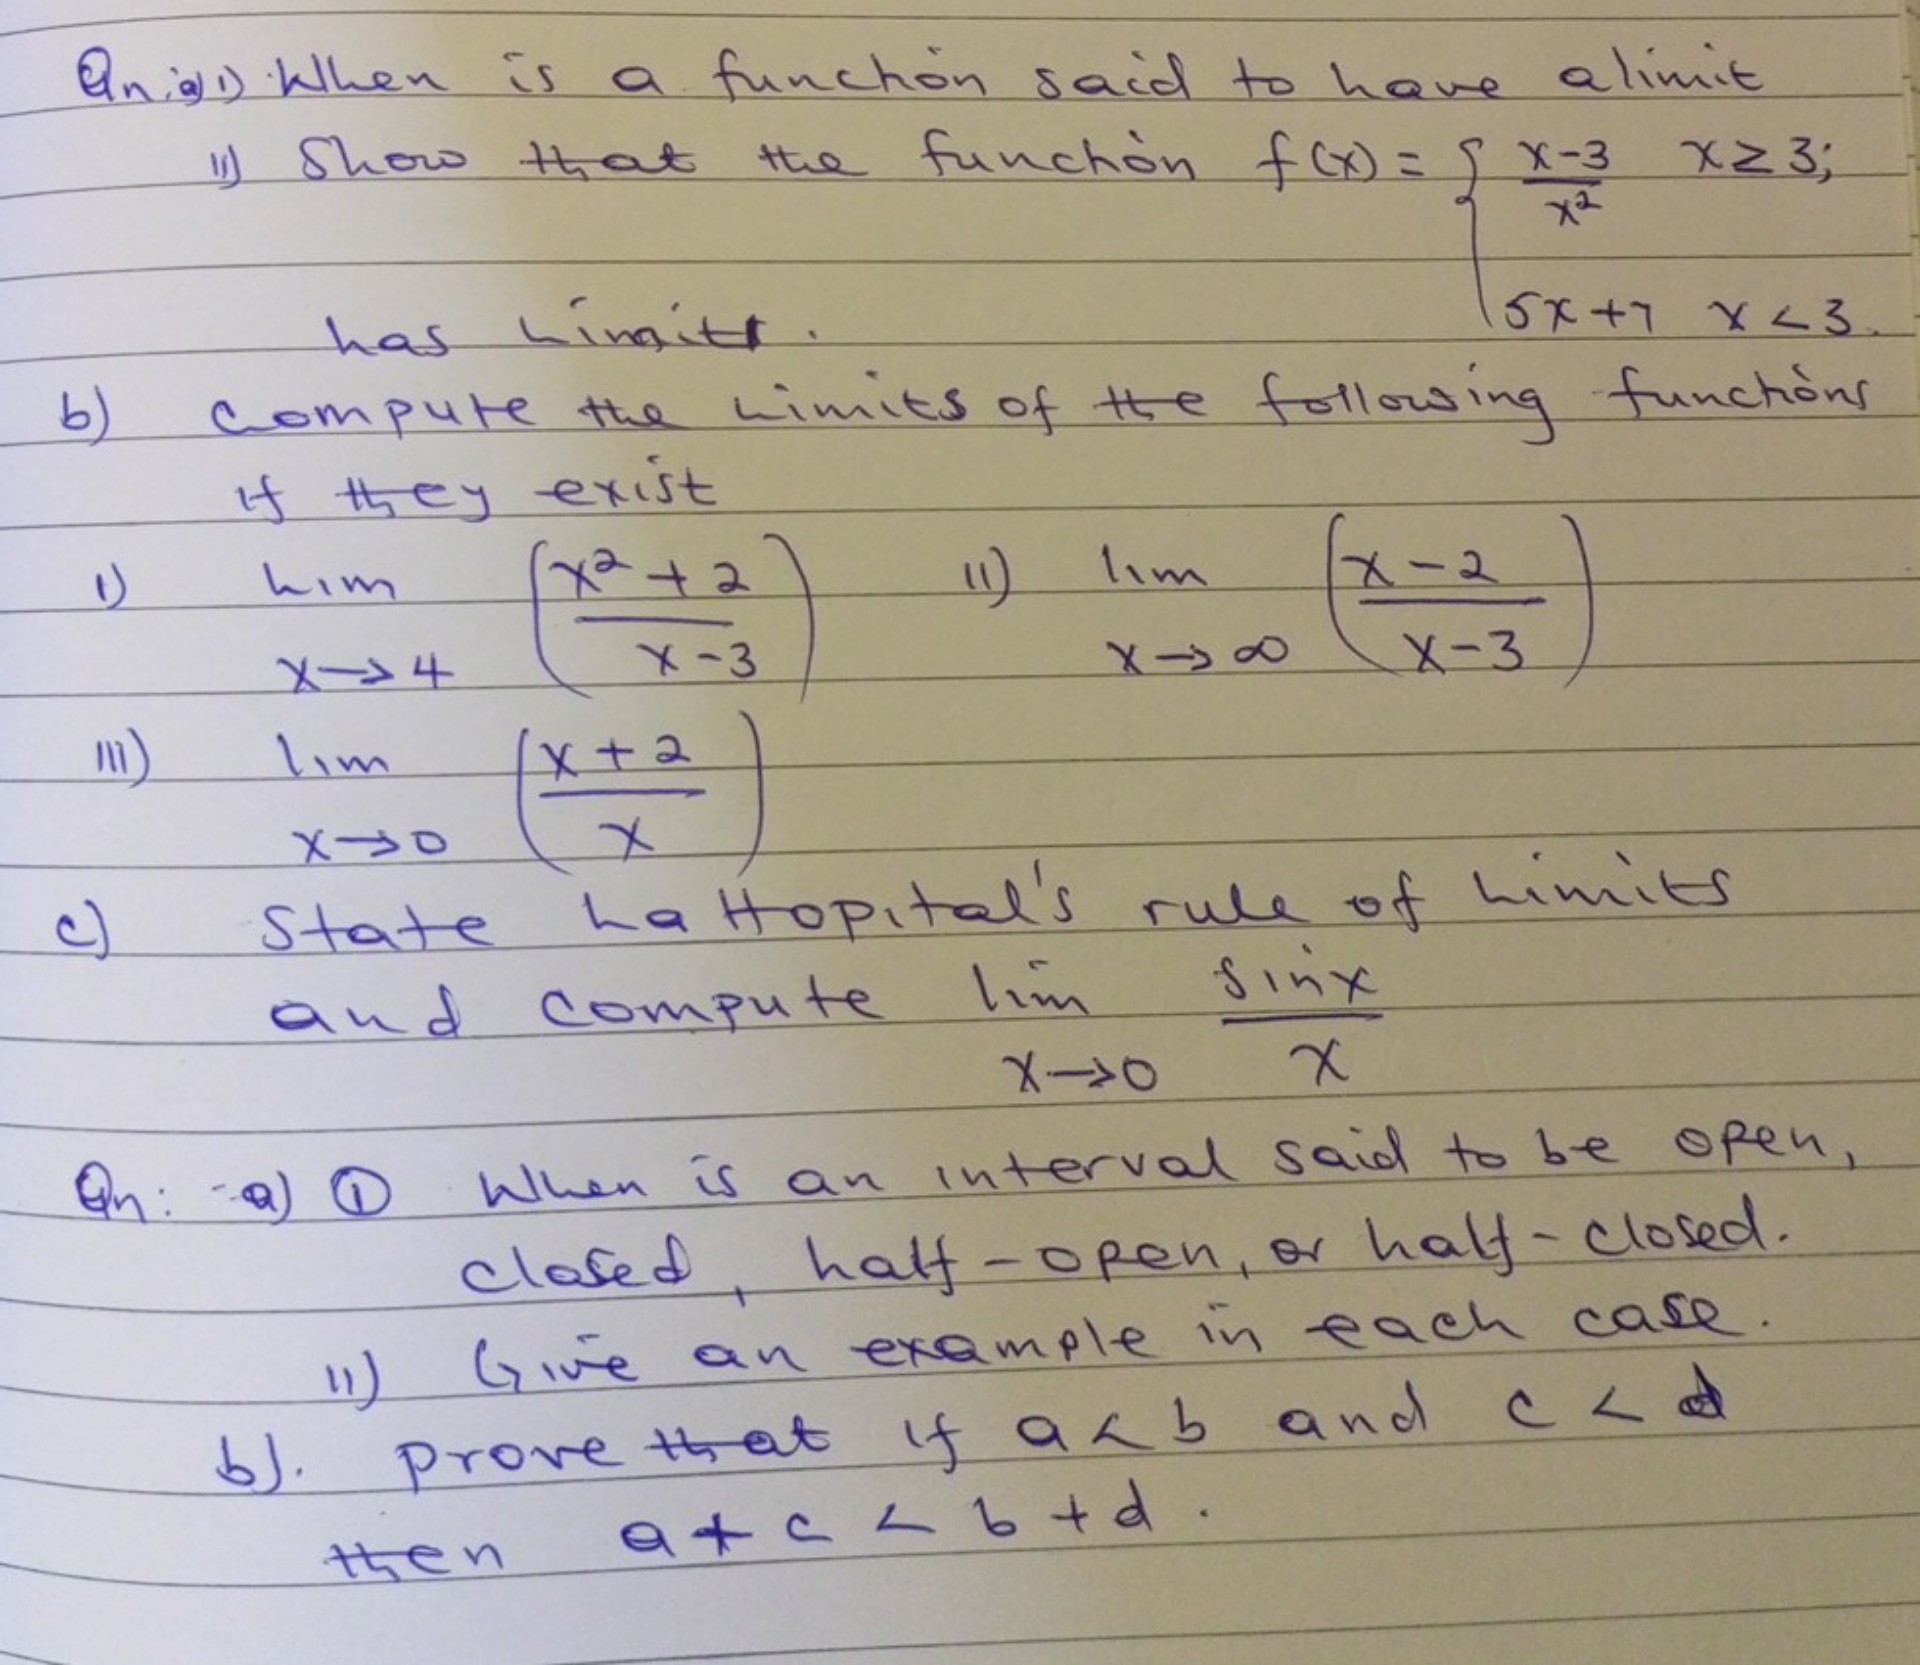 Qn: a) i) When is a function said to have a limit
ii) Show that the function f(x) = { x-3/x² x ≥ 3;
5x+7 x < 3.
has Limits.
b) Compute the Limits of the following functions
if they exist
i) Lim x→4 (x²+2 / x-3) ii) lim x→∞ (x-2 / x-3)
iii) lim x→0 (x+2 / x)
c) State La Hopital's rule of Limits
and compute lim x→0 sinx / x
Qn: a) ① When is an interval said to be open,
closed, half-open, or half-closed.
ii) Give an example in each case.
b). prove that if a < b and c < d
then a + c < b + d.